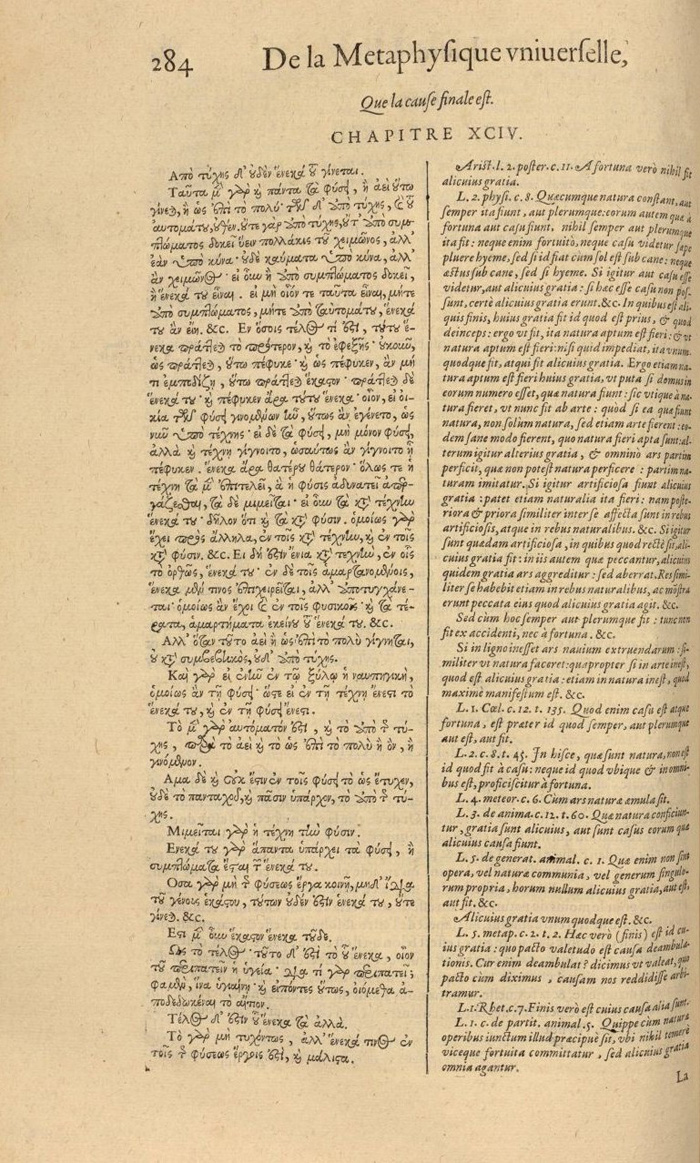 284 De la Metaphysique vniuerselle,
Que la cause finale est.
CHAPITRE XCIV.
Ἀπὸ τύχης δ' οὐδὲν ἕνεκά του γίνεται.
Ταῦτα μὲν γὰρ καὶ πάντα τὰ φύσει, ἢ ἀεὶ οὕτω
γίνεται, ἢ ὡς ἐπὶ τὸ πολύ· τῶν δ' ἀπὸ τύχης, καὶ τοῦ
αὐτομάτου, οὐθέν. οὔτε γὰρ ἀπὸ τύχης, οὔτ' ἀπὸ συμ-
πτώματος δοκεῖ ὕειν πολλάκις τοῦ χειμῶνος, ἀλλ'
ἐὰν ὑπὸ κύνα· οὐδὲ καύματα ὑπὸ κύνα, ἀλλ'
ἂν χειμῶνος· εἰ οὖν ἢ ἀπὸ συμπτώματος δοκεῖ,
ἢ ἕνεκά του εἶναι. εἰ μὴ οἷόν τε ταῦτα εἶναι, μήτε
ἀπὸ συμπτώματος, μήτε ἀπὸ ταὐτομάτου, ἕνεκά
του ἂν εἴη. &c. Ἐν ὅσοις τέλος τί ἐστι, τούτου ἕ-
νεκα πράττεται τὸ πρότερον, καὶ τὸ ἐφεξῆς· οὐκοῦν,
ὡς πράττεται, οὕτω πέφυκε· καὶ ὡς πέφυκεν, ἂν μή
τι ἐμποδίζῃ, οὕτω πράττεται ἕκαστον· πράττεται δὲ
ἕνεκά του· καὶ πέφυκεν ἄρα τούτου ἕνεκα· οἷον, εἰ οἰ-
κία τῶν φύσει γινομένων ἦν, οὕτως ἂν ἐγένετο, ὡς
νῦν ὑπὸ τέχνης· εἰ δὲ τὰ φύσει, μὴ μόνον φύσει,
ἀλλὰ καὶ τέχνῃ γίγνοιτο, ὡσαύτως ἂν γίγνοιτο ᾗ
πέφυκεν. ἕνεκα ἄρα θατέρου θάτερον· ὅλως τε ἡ
τέχνη τὰ μὲν ἐπιτελεῖ, ἃ ἡ φύσις ἀδυνατεῖ ἀπερ-
γάζεσθαι, τὰ δὲ μιμεῖται· εἰ οὖν τὰ κατὰ τέχνην
ἕνεκά του· δῆλον ὅτι καὶ τὰ κατὰ φύσιν. ὁμοίως γὰρ
ἔχει πρὸς ἄλληλα, ἐν τοῖς κατὰ τέχνην, καὶ ἐν τοῖς
κατὰ φύσιν. &c. Εἰ δή ἐστιν ἔνια κατὰ τέχνην, ἐν οἷς
τὸ ὀρθῶς, ἕνεκά του· ἐν δὲ τοῖς ἁμαρτανομένοις,
ἕνεκα μέν τινος ἐπιχειρεῖται, ἀλλ' ἀποτυγχάνε-
ται· ὁμοίως ἂν ἔχοι καὶ ἐν τοῖς φυσικοῖς· καὶ τὰ τέ-
ρατα, ἁμαρτήματα ἐκείνου τοῦ ἕνεκά του. &c.
Ἀλλ' ὅταν τοῦτο ἀεὶ ἢ ὡς ἐπὶ τὸ πολὺ γίγνηται,
οὐ κατὰ συμβεβηκὸς, οὐδ' ἀπὸ τύχης.
Καὶ γὰρ εἰ ἐνῆν ἐν τῷ ξύλῳ ἡ ναυπηγική,
ὁμοίως ἂν τῇ φύσει· ὥστε εἰ ἐν τῇ τέχνῃ ἔνεστι τὸ
ἕνεκά του, καὶ ἐν τῇ φύσει ἔνεστι.
Τὸ μὲν γὰρ αὐτόματόν ἐστι, καὶ τὸ ἀπὸ τῆς τύ-
χης, παρὰ τὸ ἀεὶ καὶ τὸ ὡς ἐπὶ τὸ πολὺ ἢ ὂν, ἢ
γινόμενον.
Ἅμα δὲ καὶ οὐκ ἔστιν ἐν τοῖς φύσει τὸ ὡς ἔτυχεν,
οὐδὲ τὸ πανταχοῦ, καὶ πᾶσιν ὑπάρχον, τὸ ἀπὸ τῆς τύ-
χης.
Μιμεῖται γὰρ ἡ τέχνη τὴν φύσιν.
Ἕνεκά του γὰρ ἅπαντα ὑπάρχει τὰ φύσει, ἢ
συμπτώματα ἔσται τῶν ἕνεκά του.
Ὅσα γὰρ μὴ τῆς φύσεως ἔργα κοινῇ, μηδ' ἴδια
τοῦ γένους ἑκάστου, τούτων οὐδὲν ἐστὶν ἕνεκά του, οὔτε
γίνεται. &c.
Ἔτι μὲν οὖν ἕκαστον ἕνεκα τοῦδε.
Ὡς τὸ τέλος· τοῦτο δ' ἐστὶ τὸ οὗ ἕνεκα, οἷον
τοῦ περιπατεῖν ἡ ὑγεία· διὰ τί γὰρ περιπατεῖ;
φαμὲν, ἵνα ὑγιαίνῃ· καὶ εἰπόντες οὕτως, οἰόμεθα ἀ-
ποδεδωκέναι τὸ αἴτιον.
Τέλος δ' ἐστὶν οὗ ἕνεκα τὰ ἄλλα.
Τὸ γὰρ μὴ τυχόντως, ἀλλ' ἕνεκά τινος ἐν
τοῖς τῆς φύσεως ἔργοις ἐστὶ, καὶ μάλιστα.
Arist. l. 2. poster. c. 11. A fortuna verò nihil fit
alicuius gratia.
L. 2. physi. c. 8. Quæcumque natura constant, aut
semper ita fiunt, aut plerumque: eorum autem quæ à
fortuna aut casu fiunt, nihil semper aut plerumque
ita fit: neque enim fortuitò, neque casu videtur sæpe
pluere hyeme, sed si id fiat cum sol est sub cane: neque
æstus sub cane, sed si hyeme. Si igitur aut casu esse
videtur, aut alicuius gratia: si hæc esse casu non pos-
sunt, certè alicuius gratia erunt. &c. In quibus est ali-
quis finis, huius gratia fit id quod est prius, & quod
deinceps: ergo vt fit, ita natura aptum est fieri: & vt
natura aptum est fieri: nisi quid impediat, ita vnum-
quodque fit, atqui fit alicuius gratia. Ergo etiam na-
tura aptum est fieri huius gratia, vt puta si domus in
eorum numero esset, quæ natura fiunt: sic vtique à na-
tura fieret, vt nunc fit ab arte: quod si ea quæ fiunt
natura, non solùm natura, sed etiam arte fierent: eo-
dem sanè modo fierent, quo natura fieri apta sunt: al-
terum igitur alterius gratia, & omninò ars partim
perficit, quæ non potest natura perficere: partim na-
turam imitatur. Si igitur artificiosa fiunt alicuius
gratia: patet etiam naturalia ita fieri: nam poste-
riora & priora similiter inter se affecta sunt in rebus
artificiosis, atque in rebus naturalibus. &c. Si igitur
sunt quædam artificiosa, in quibus quod rectè fit, ali-
cuius gratia fit: in iis autem quæ peccantur, alicuius
quidem gratia ars aggreditur: sed aberrat. Res simi-
liter se habebit etiam in rebus naturalibus, ac mōstra
erunt peccata eius quod alicuius gratia agit. &c.
Sed cùm hoc semper aut plerumque fit: tunc non
fit ex accidenti, nec à fortuna. &c.
Si in ligno inesset ars nauium extruendarum: si-
militer vt natura faceret: quapropter si in arte inest,
quod est alicuius gratia: etiam in natura inest, quod
maximè manifestum est. &c.
L. 1. Cœl. c. 12. t. 135. Quod enim casu est atque
fortuna, est præter id quod semper, aut plerumque
aut est, aut fit.
L. 2. c. 8. t. 45. In hisce, quæ sunt natura, non est
id quod fit à casu: neque id quod vbique & in omni-
bus est, proficiscitur à fortuna.
L. 4. meteor. c. 6. Cum ars naturæ æmula sit.
L. 3. de anima. c. 12. t. 60. Quæ natura conficiun-
tur, gratia sunt alicuius, aut sunt casus eorum quæ
alicuius causa fiunt.
L. 5. de generat. animal. c. 1. Quæ enim non sunt
opera, vel naturæ communia, vel generum singulo-
rum propria, horum nullum alicuius gratia, aut est,
aut fit. &c.
Alicuius gratia vnumquodque est. &c.
L. 5. metap. c. 2. t. 2. Hæc verò (finis) est id cu-
ius gratia: quo pacto valetudo est causa deambula-
tionis. Cur enim deambulat? dicimus vt valeat, quo
pacto cùm diximus, causam nos reddidisse arbi-
tramur.
L. 1. Rhet. c. 7. Finis verò est cuius causa alia sunt.
L. 1. c. de partit. animal. 5. Quippe cùm naturæ
operibus iunctum illud præcipuè sit, vbi nihil temerè
viceque fortuita committatur, sed alicuius gratia
omnia agantur.
La